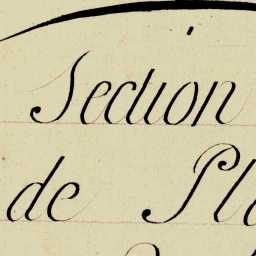 Section
de